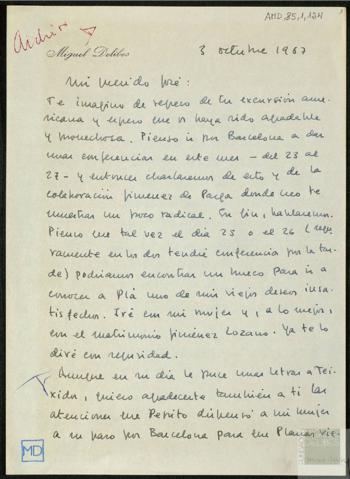 AMD,85,1,124
Archivo
Miguel Delibes
3 octubre 1967
Mi querido José:
Te imagino de regreso de tu excursión ame-
ricana y espero que os haya sido agradable
y provechosa. Pienso ir por Barcelona a dar
unas conferencias en este mes – del 23 al
27 – y entonces charlaremos de esto y de la
colaboración Jiménez de Parga donde creo te
muestras un poco radical. En fin, hablaremos.
Pienso que tal vez el día 25 o el 26 (
en los dos tendré conferencia por la tar-
de) podríamos encontrar un hueco para ir a
conocer a Plá uno de mis viejos deseos insa-
tisfechos. Iré con mi mujer y, a lo mejor,
con el matrimonio Jiménez Lozano. Ya te lo
diré con seguridad.
Aunque en su día le puse unas letras a Tei-
xidor, quiero agradecerte también a ti las
atenciones que Pepito dispensó a mi mujer
a su paso por Barcelona para que
MD